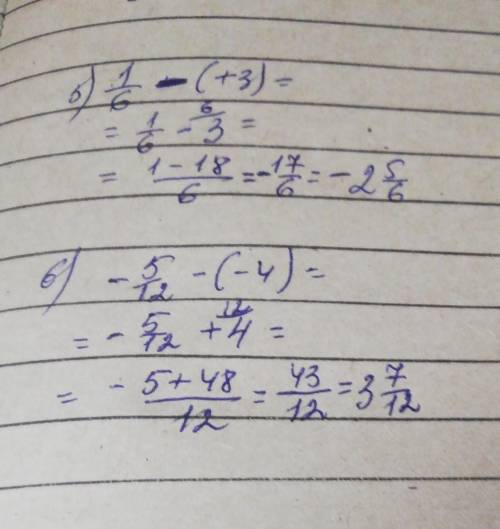 5) 1/6 - (+3) =
= 1/6 - 3^6 =
= (1-18)/6 = -17/6 = -2 5/6
6) -5/12 - (-4) =
= -5/12 + 4^12 =
= (-5+48)/12 = 43/12 = 3 7/12